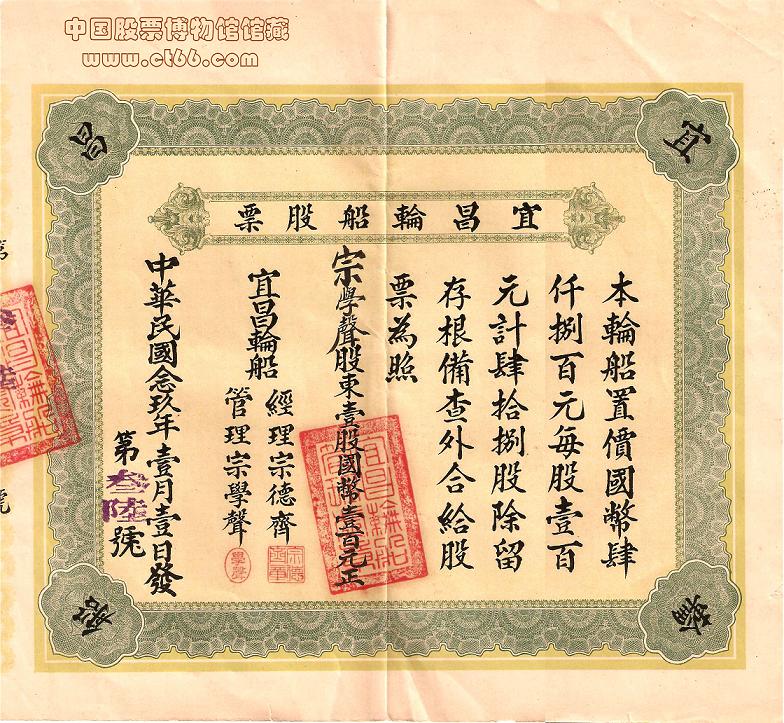 中国股票博物馆馆藏
www.ct66.com
宜
昌
輪
船
宜昌輪船股票
本輪船置價國幣肆
仟捌百元每股壹百
元計肆拾捌股除留
存根備查外合給股
票為照
宗學聲股東壹股國幣壹百元正
宜昌輪船
經理宗德齊
管理宗學聲
中華民國念玖年壹月壹日發
第叁陸號
第
號
學聲